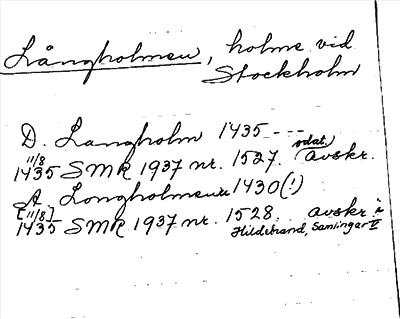 Långholmen, holme vid
Stockholm
D. Langholm 1435 ---
11/8 1435 SMR 1937 nr. 1527. odat. avskr.
A. Longholmenn 1430(!)
[11/8] 1435 SMR 1937 nr. 1528. avskr i
Hildebrand, Samlingar II